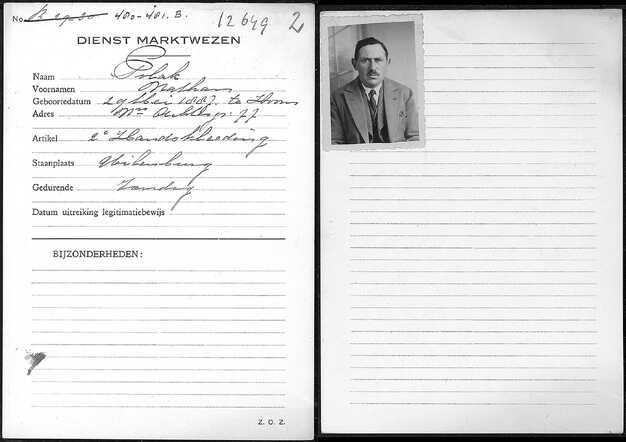 No. 400-401. B. 12649 2
DIENST MARKTWEZEN
Naam Polak
Voornamen Nathan
Geboortedatum 29 Mei 1887. te Hoorn
Adres 77
Artikel 2e Handskleeding
Staanplaats Uilenburg
Gedurende Zondag
Datum uitreiking legitimatiebewijs
BIJZONDERHEDEN:
Z. O. Z.